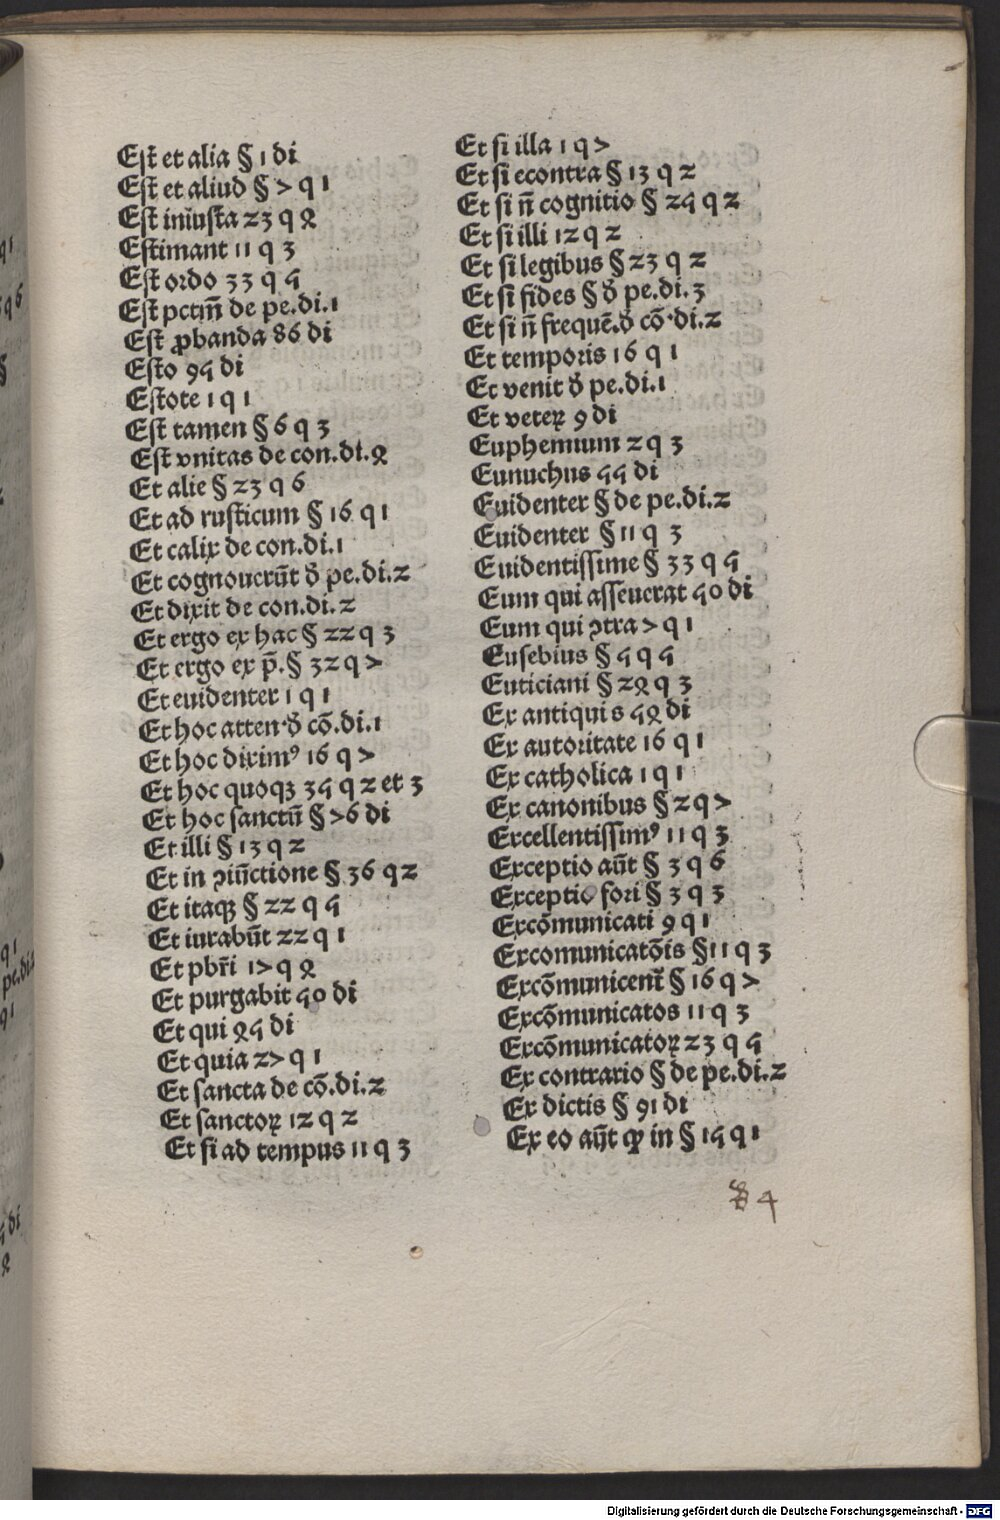 Est et alia § 1 di
Est et aliud § 7 q 1
Est iniusta 23 q 8
Estimant 11 q 3
Est ordo 33 q 4
Est pctm̄ de pe.di.1
Est ꝓbanda 86 di
Esto 94 di
Estote 1 q 1
Est tamen § 6 q 3
Est vnitas de con.di.8
Et alie § 23 q 6
Et ad rusticum § 16 q 1
Et calix de con.di.1
Et cognouerūt đ pe.di.2
Et dixit de con.di.2
Et ergo ex hac § 22 q 3
Et ergo ex p̄.§ 32 q 7
Et euidenter 1 q 1
Et hoc atten.đ cō.di.1
Et hoc dixim⁹ 16 q 7
Et hoc quoqꝫ 34 q 2 et 3
Et hoc sanctū § 76 di
Et illi § 13 q 2
Et in ꝯiūctione § 36 q 2
Et itaqꝫ § 22 q 4
Et iurabūt 22 q 1
Et pbr̄i 17 q 8
Et purgabit 40 di
Et qui 84 di
Et quia 27 q 1
Et sancta de cō.di.2
Et sanctoꝝ 12 q 2
Et si ad tempus 11 q 3
Et si illa 1 q 7
Et si econtra § 13 q 2
Et si n̄ cognitio § 24 q 2
Et si illi 12 q 2
Et si legibus § 23 q 2
Et si fides § đ pe.di.3
Et si n̄ frequē.đ cō.di.2
Et temporis 16 q 1
Et venit đ pe.di.1
Et veteꝝ 9 di
Euphemium 2 q 3
Eunuchus 44 di
Euidenter § de pe.di.2
Euidenter § 11 q 3
Euidentissime § 33 q 4
Eum qui asseuerat 40 di
Eum qui ꝯtra 7 q 1
Eusebius § 4 q 4
Euticiani § 28 q 3
Ex antiquis 48 di
Ex autoritate 16 q 1
Ex catholica 1 q 1
Ex canonibus § 2 q 7
Excellentissim⁹ 11 q 3
Exceptio aūt § 3 q 6
Exceptio fori § 3 q 3
Excōmunicati 9 q 1
Excomunicatōis § 11 q 3
Excōmunicent̄ § 16 q 7
Excōmunicatos 11 q 3
Excōmunicatoꝝ 23 q 4
Ex contrario § de pe.di.2
Ex dictis § 91 di
Ex eo aūt ꝙ in § 14 q 1
Digitalisierung gefördert durch die Deutsche Forschungsgemeinschaft - DFG